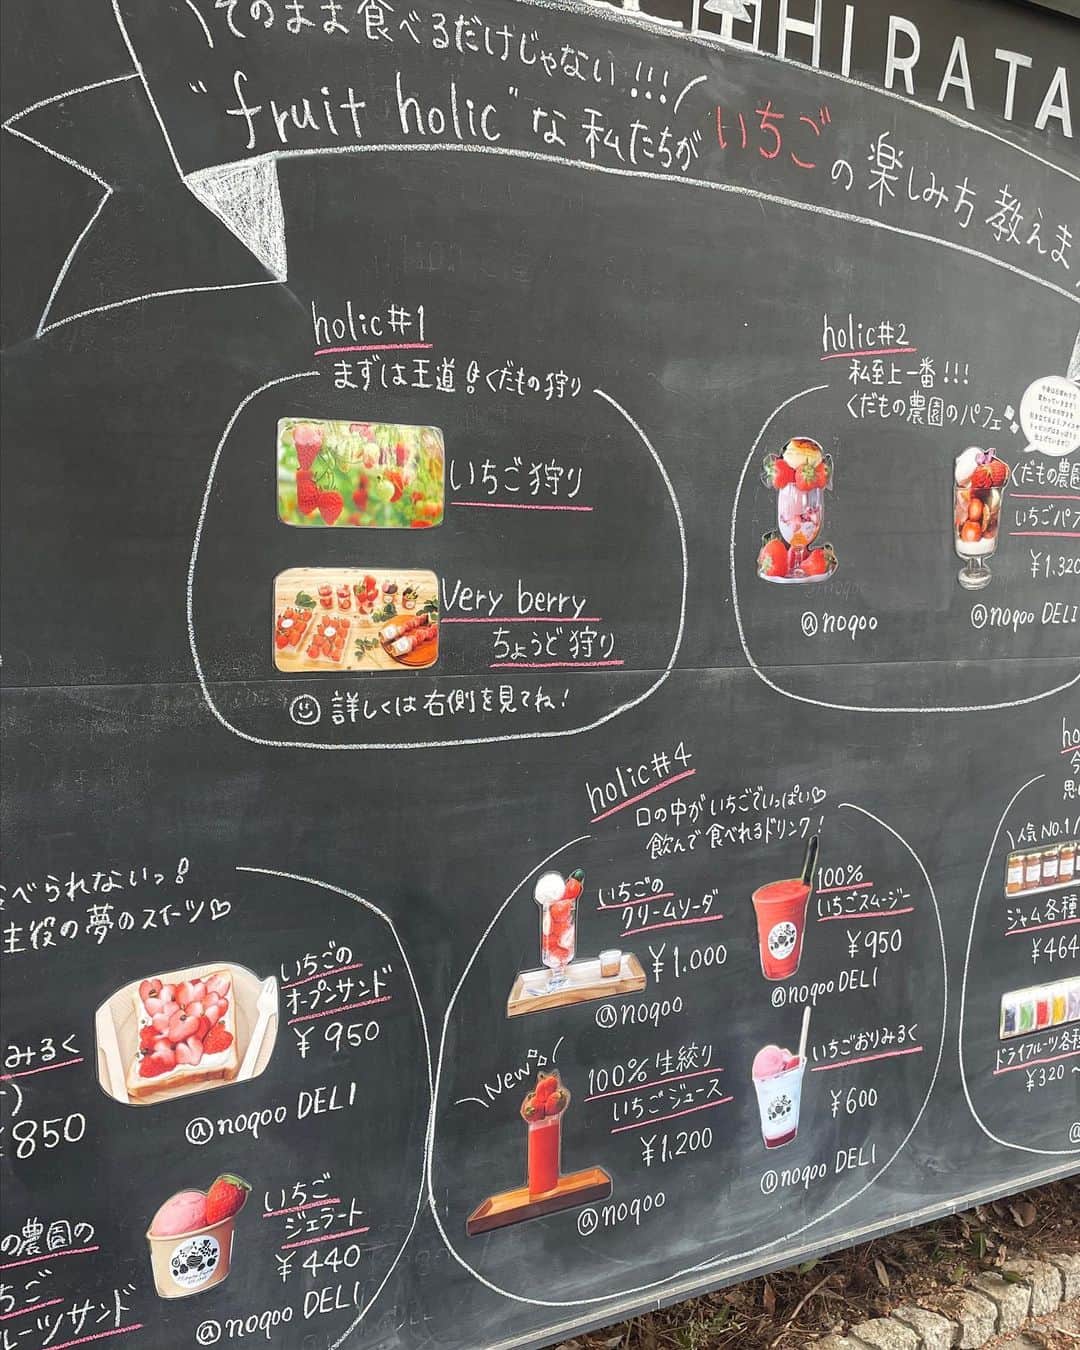 HIRATA
そのまま食べるだけじゃない!!!
"fruit holic"な私たちがいちごの楽しみ方教えま
holic#1
まずは王道!くだもの狩り
いちご狩り
Very berry
ちょうど狩り
詳しくは右側を見てね!
holic#2
私至上一番!!!
くだもの農園のパフェ
@noqoo
くだもの農園
いちごパフ
¥1.320
@noqoo DELI
べられないっ!
主役の夢のスイーツ♡
みるく
¥850
いちごの
オープンサンド
¥950
@noqoo DELI
の農園の
ちご
ルーツサンド
いちご
ジェラート
¥440
@noqoo DELI
holic#4
口の中がいちごでいっぱい♡
飲んで食べれるドリンク!
いちごの
クリームソーダ
¥1.000
@noqoo
100%
いちごスムージー
¥950
@noqoo DELI
New
100%生絞り
いちごジュース
¥1,200
@noqoo
いちごおりみるく
¥600
@noqoo DELI
ho
今
思
人気NO.1
ジャム各種
¥464
ドライフルーツ各種
¥320~
@